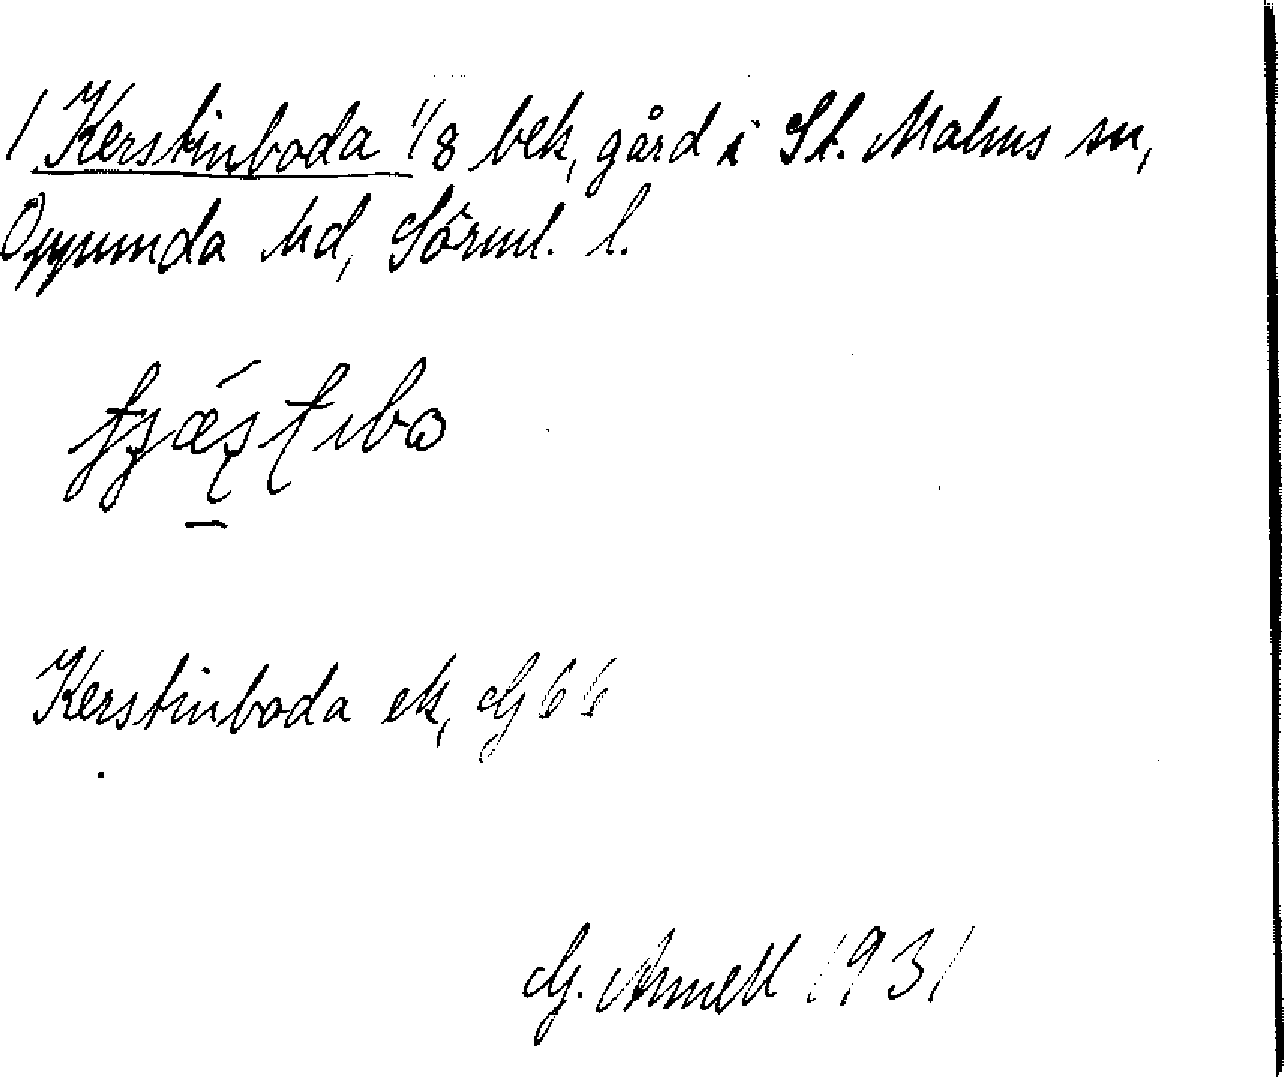 1 Kerstinboda 1/8 bek, gård i St. Malms sn,
Oppunda hd, Sörml. l.
Kerstinboda ek, G 66
G. Armell 1931